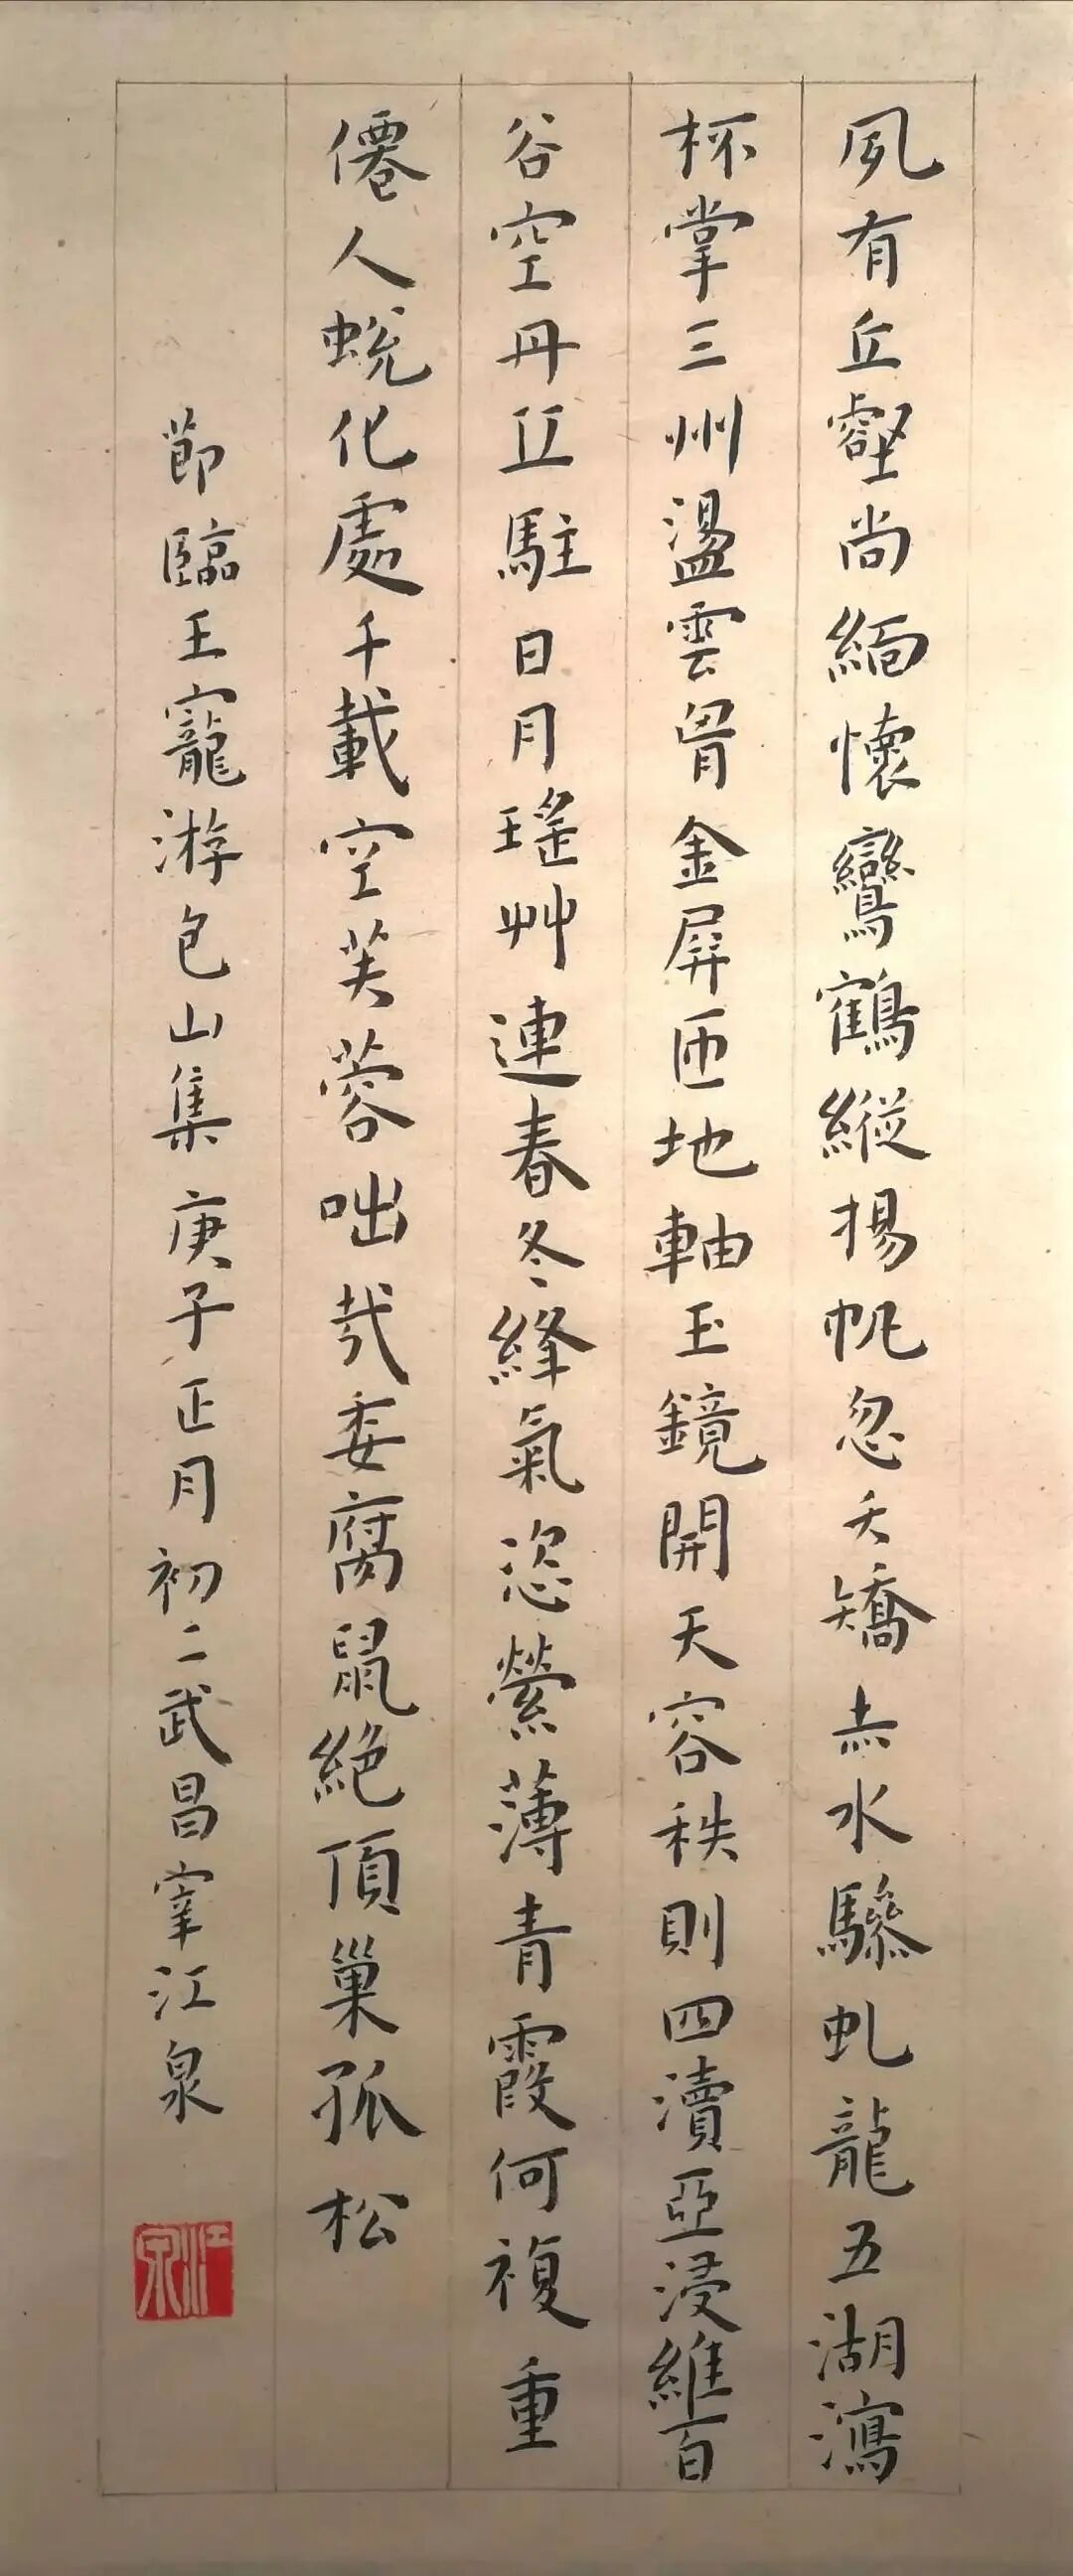 夙有丘壑尚緬懷鸞鶴縱揚帆忽夭矯赤水驂虬龍五湖瀉
杯掌三州盪雲胷金屏匝地軸玉鏡開天容秩則四瀆亞浸維百
谷空丹丘駐日月瑤艸連春冬絳氣恣縈薄青霞何複重
僊人蛻化處千載空芙蓉咄哉委腐鼠絶頂巢孤松
節臨王寵游包山集庚子正月初二武昌寓江泉
江泉